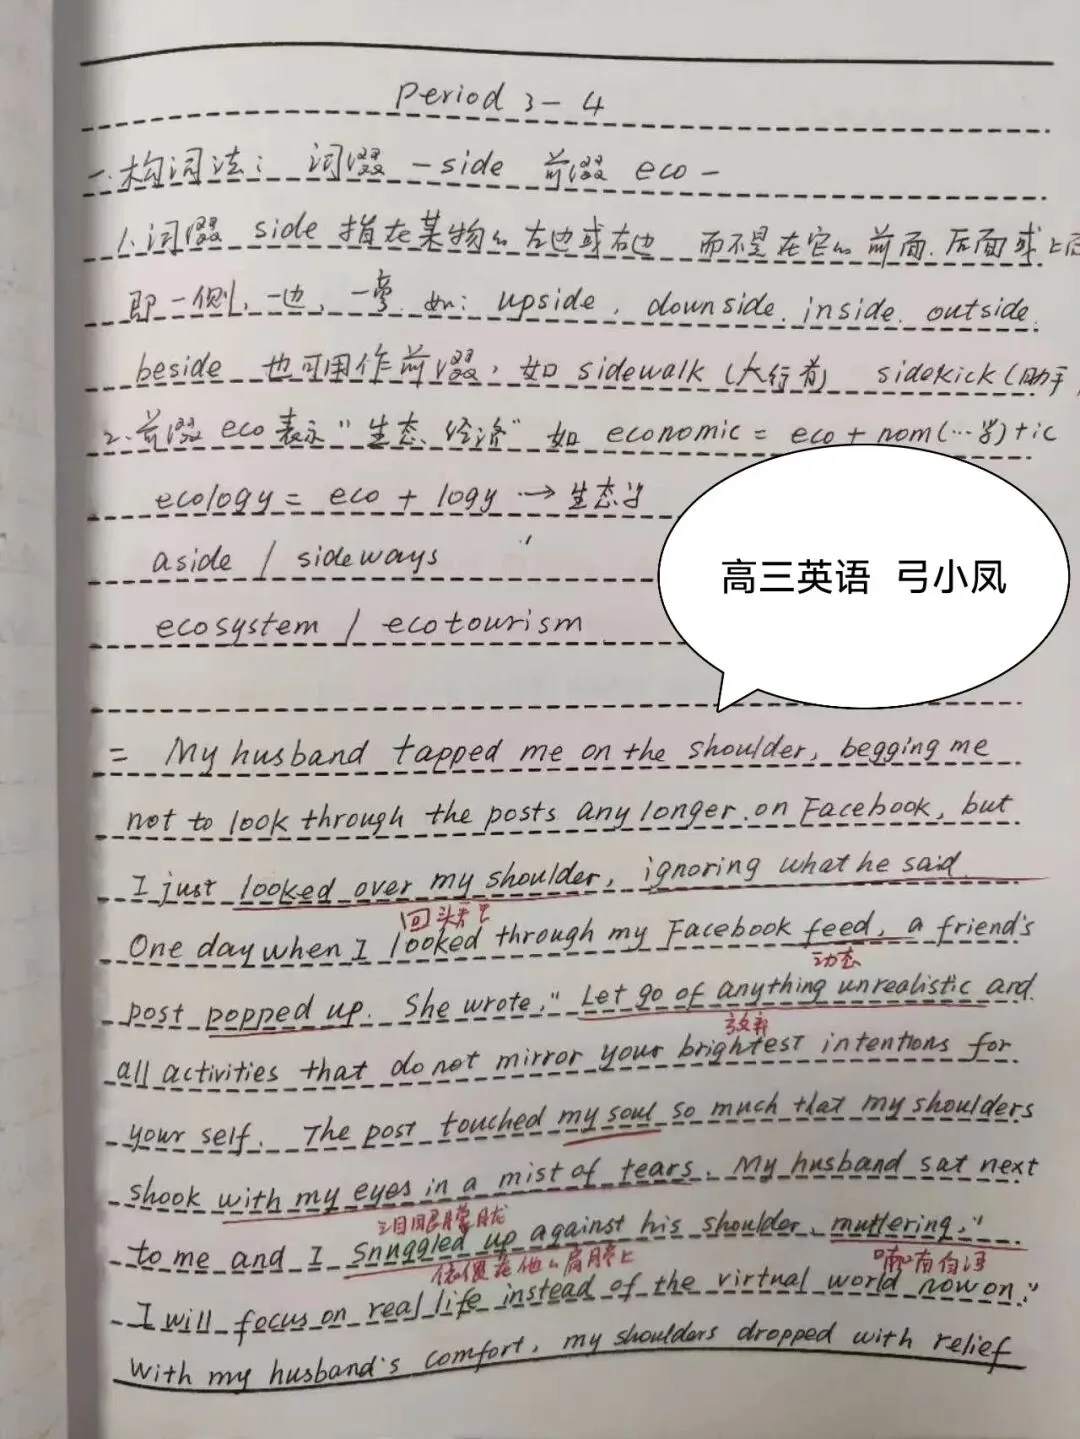 Period 3-4
一.构词法: 词缀 -side 前缀 eco-
1.词缀 side 指在某物的左边或右边 而不是在它的前面.后面或上
即一侧,一边,一旁.如: upside, downside. inside. outside.
beside 也可用作前缀,如 sidewalk (人行道) sidekick (助手
2.前缀 eco 表示"生态、经济" 如 economic = eco + nom(…学)+ic
ecology = eco + logy → 生态学
aside / sideways
高三英语 弓小凤
ecosystem / ecotourism
= My husband tapped me on the shoulder, begging me
not to look through the posts any longer on Facebook, but
I just looked over my shoulder, ignoring what he said.
回头看
One day when I looked through my Facebook feed, a friend's
动态
post popped up. She wrote, "Let go of anything unrealistic and
放弃
all activities that do not mirror your brightest intentions for
your self. The post touched my soul so much that my shoulders
shook with my eyes in a mist of tears. My husband sat next
泪眼朦胧
to me and I snuggled up against his shoulder, muttering, "
依偎在他的肩膀上 喃喃自语
I will focus on real life instead of the virtual world now on."
With my husband's comfort, my shoulders dropped with relief